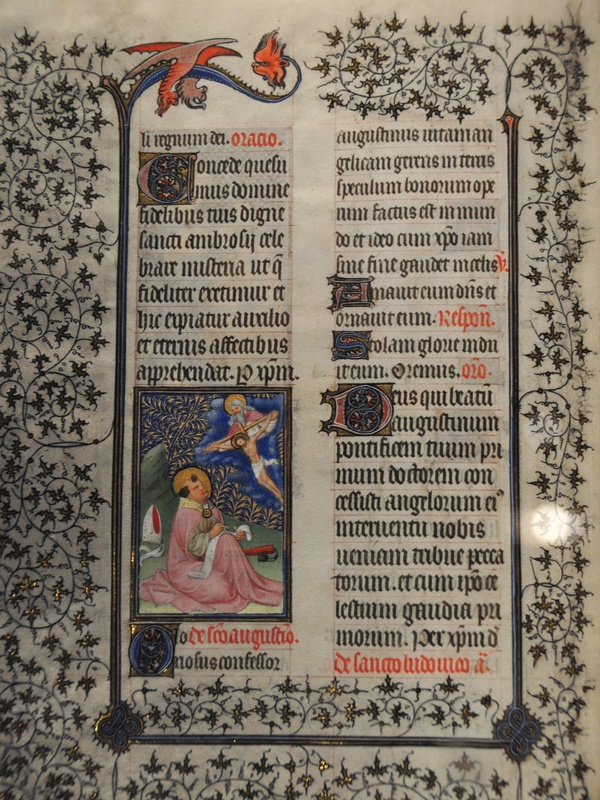 li regnum dei. oracio.
Concede quesu
mus domine
fidelibus tuis digne
sancti ambrosij cele
brare misteria ut q̄
fideliter exetimur et
hic expiatur auxilio
et eternis affectibus
apprehendat. P xp̄m.
de sc̄o augustīo.
riosus confessor
augustinus uitam an
gelicam gerens in terris
speculum bonorum ope
rum factus est in mun
do et ideo cum xp̄o iam
sine fine gaudet in celis. V̄.
Amauit eum dn̄s et
ornauit eum. Respon̄.
Stolam glorie indu
it eum. Oremus. or̄o.
Deus qui beatū
augustinum
pontificem tuum pri
mum doctorem con
cessisti angelorum ei9
interuentu nobis
ueniam tribue pecca
torum. et cum ip̄o ce
lestium gaudia pri
morum. Per xp̄m d̄
de sancto ludouico a̅.